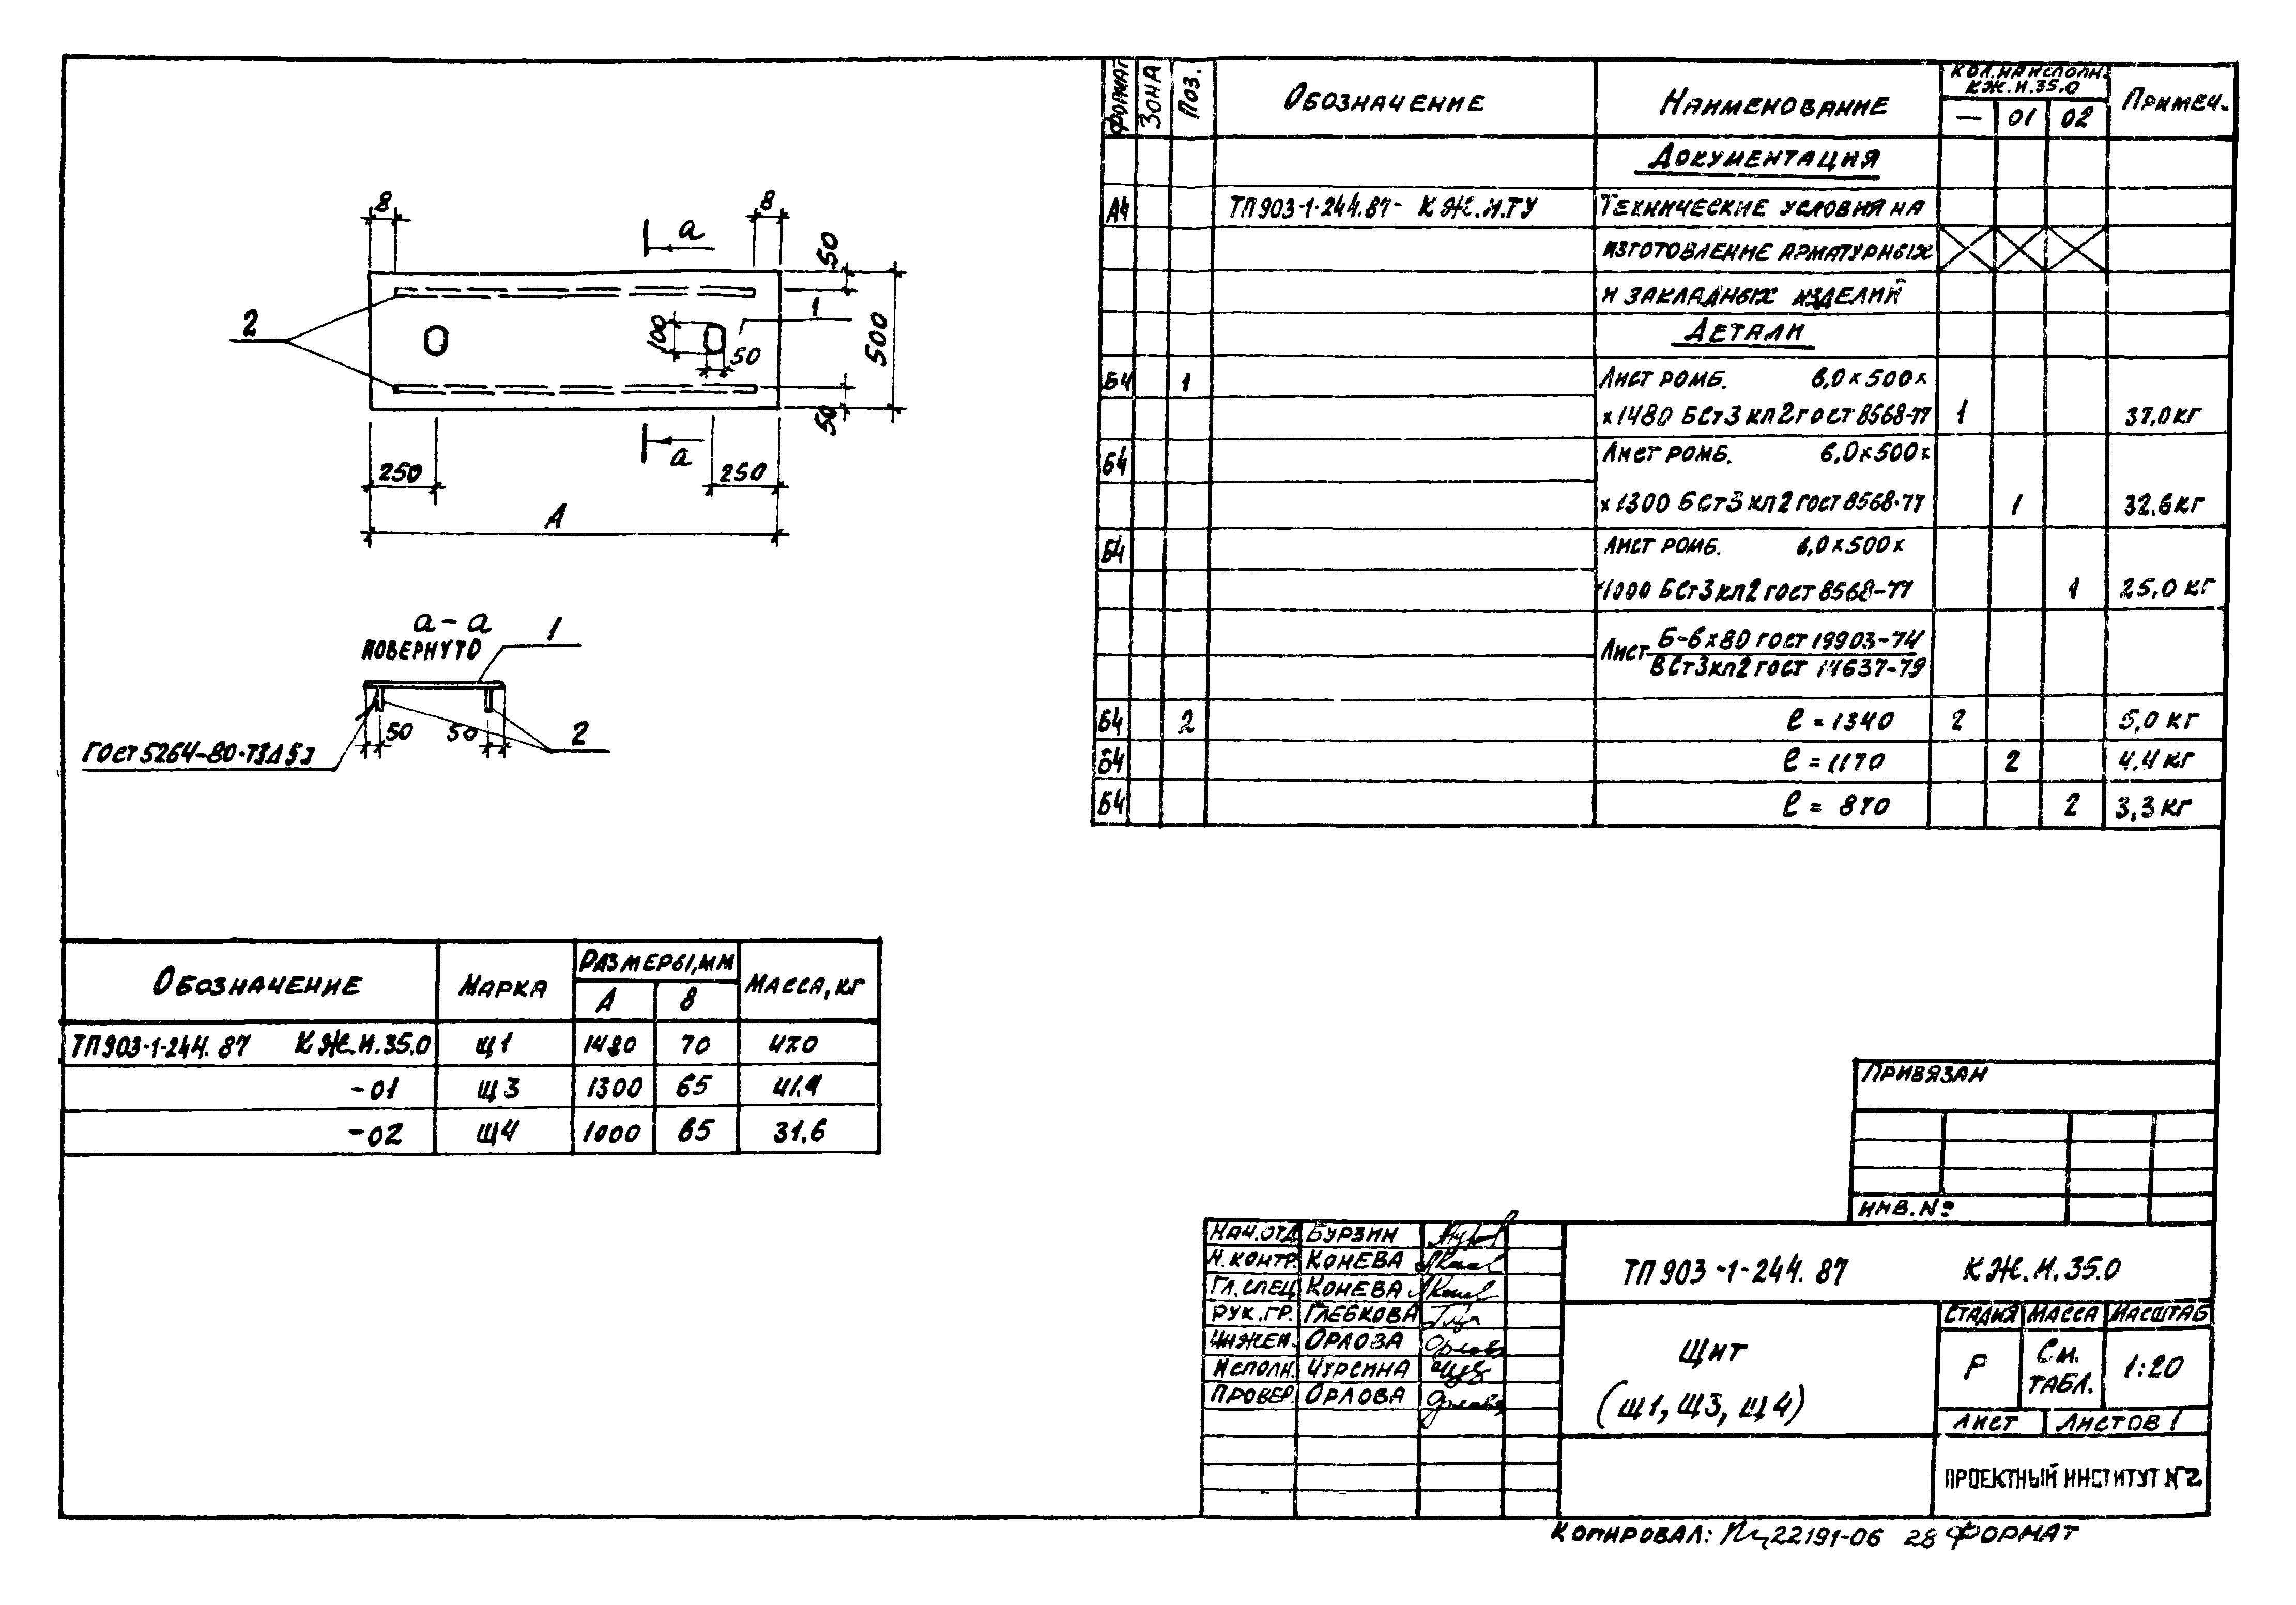 8
8
а
50
1
2
100
50
500
50
а
250
250
А
а - а
повернуто
1
50
50
2
ГОСТ 5264-80-Т3Δ5
Формат
Зона
Поз.
Обозначение
Наименование
Кол. на исполн. КЖ.И.35.0
—
01
02
Примеч.
Документация
А4
ТП 903-1-244.87- КЖ.И.ТУ
Технические условия на
изготовление арматурных
и закладных изделий
Детали
Б4 1 Лист ромб. 6,0×500×
×1480 БСт3кп2 ГОСТ 8568-77 1 37,0кг
Б4 Лист ромб. 6,0×500×
×1300 БСт3кп2 ГОСТ 8568-77 1 32,6кг
Б4 Лист ромб. 6,0×500×
×1000 БСт3кп2 ГОСТ 8568-77 1 25,0 кг
Лист Б-6×80 ГОСТ 19903-74
ВСт3кп2 ГОСТ 14637-79
Б4 2 ℓ = 1340 2 5,0 кг
Б4 ℓ = 1170 2 4,4 кг
Б4 ℓ = 870 2 3,3 кг
Обозначение
Марка
Размеры, мм
А
В
Масса, кг
ТП 903-1-244.87 КЖ.И.35.0 Щ1 1480 70 47.0
-01 Щ3 1300 65 41.4
-02 Щ4 1000 65 31.6
Привязан
Инв. №
Нач. отд. Бурзин
Н. контр. Конева
Гл. спец. Конева
Рук. гр. Глебкова
Инжен. Орлова
Исполн. Чурсина
Провер. Орлова
ТП 903-1-244.87 КЖ.И.35.0
Щит
(Щ1, Щ3, Щ4)
Стадия
Масса
Масштаб
Р
См. табл.
1:20
Лист
Листов 1
Проектный институт №2
Копировал: 22191-06 28 Формат